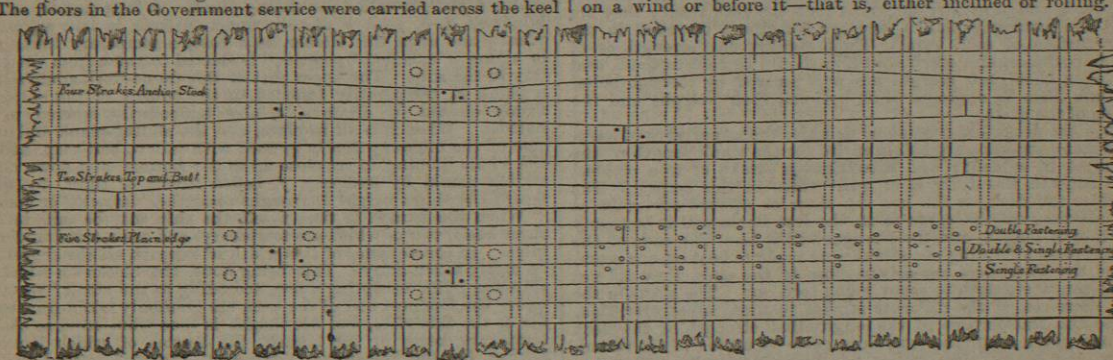 The floors in the Government service were carried across the keel | on a wind or before it—that is, either inclined or rolling.
Four Strakes Anchor Stock
Two Strakes Top and Butt
Five Strakes Plain edge
Double Fastening
Double & Single Fastening
Single Fastening